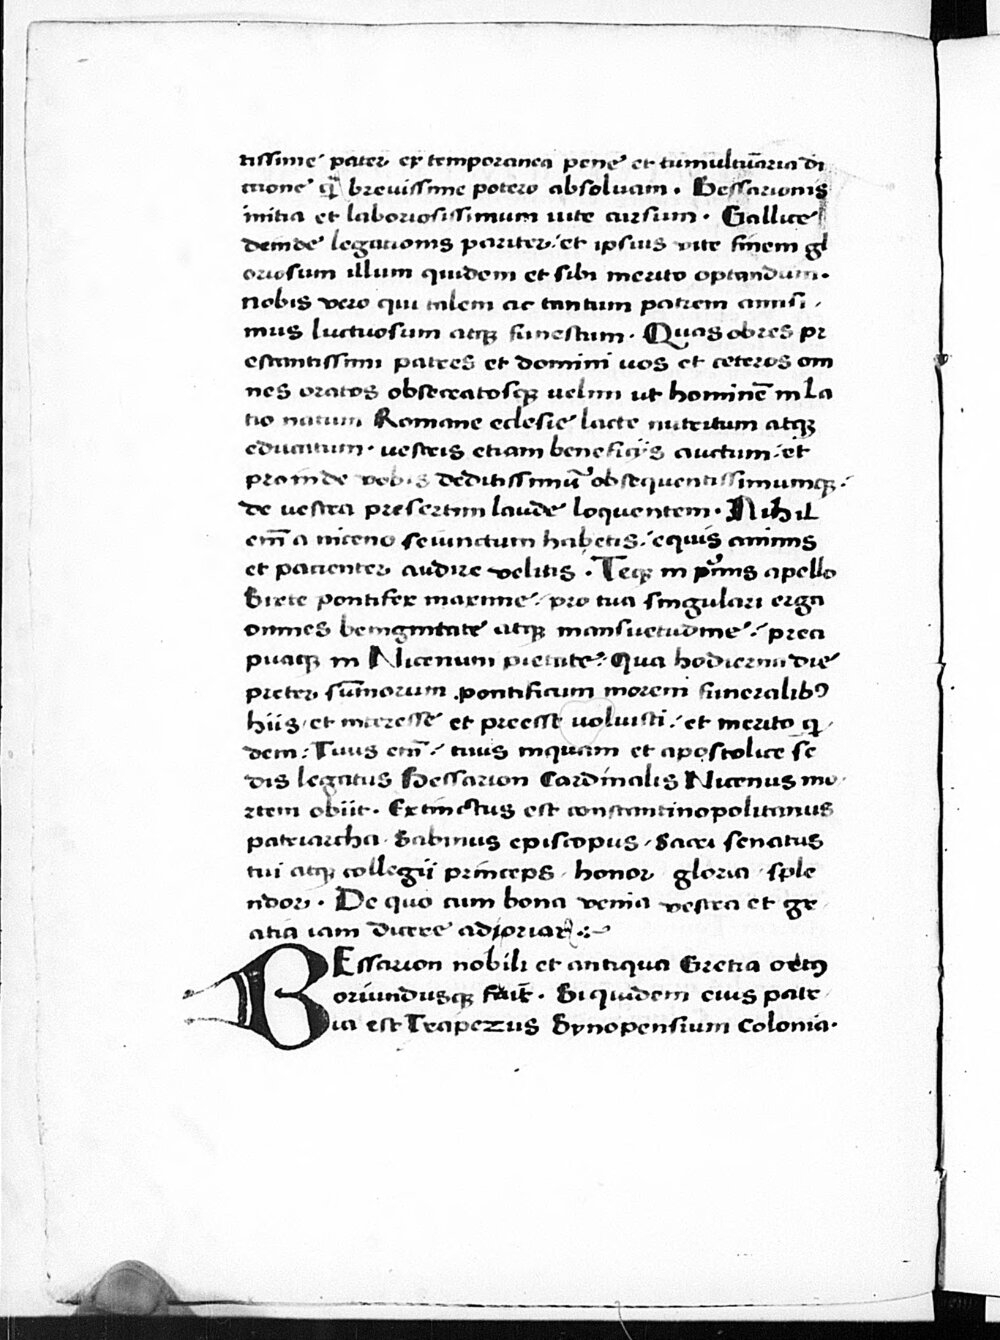 tissime pater ex temporanea pene et tumultuaria di
ctione q̃ brevissime potero absolvam. Bessarionis
initia et laboriosissimum vite cursum. Gallice
deinde legationis pariter: et ipsius vite finem gl
oriosum illum quidem et sibi merito optandum.
nobis vero qui talem ac tantum patrem amisi
mus luctuosum atq; funestum. Quas ob res pr
estantissimi patres et domini vos et ceteros om
nes oratos obsecratosq; velim ut hominẽ in La
tio natum Romane eclesie lacte nutritum atq;
educatum. vestris etiam beneficijs auctum: et
proinde vobis deditissimũ obsequentissimumq;.
de vestra presertim laude loquentem. Nihil
em̃ a niceno seiunctum habetis: equis animis
et patienter audire velitis. Teq; in p̃mis apello
Sixte pontifex maxime: pro tua singulari erga
omnes benignitate atq; mansuetudine: preci
puaq; in Nicenum pietate: Qua hodierna die
preter sũmorum pontificum morem funeralib9
hiis et interesse et preesse voluisti: et merito q̃
dem: Tuus em̃: tuus inquam et apostolice se
dis legatus Bessarion Cardinalis Nicenus mo
rtem obiit. Extinctus est constantinopolitanus
patriarcha. Sabinus episcopus. Sacri senatus
tui atq; collegii princeps. honor. gloria. sple
ndor. De quo cum bona venia vestra et gr
atia iam dicere adoriar:~
BEssarion nobili et antiqua Gretia ortus
oriundusq; fuit. Siquidem eius patr
ia est Trapezus Synopensium colonia.